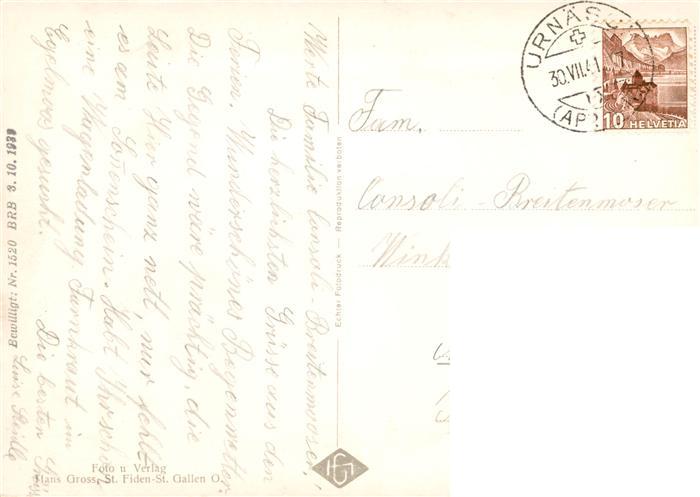 Werte Familie Consoli-Breitenmoser!
Die herzlichsten Grüsse aus den
Ferien. Wunderschönes Regenwetter.
Die Gegend wäre prächtig, die
Leute hier ganz nett, nur fehlt
es am Sonnenschein. Habt Ihr schon
eine Wagenladung Farnkraut im
Egelmoos gesucht.
Die besten
Bewilligt: Nr. 1520 BRB 3.10.1939
Foto u Verlag
Hans Gross, St. Fiden-St. Gallen O.
Echter Fotodruck — Reproduktion verboten
HG
URNÄSCH
30.VII.41
(APP.
10 HELVETIA
Fam.
Consoli-Breitenmoser